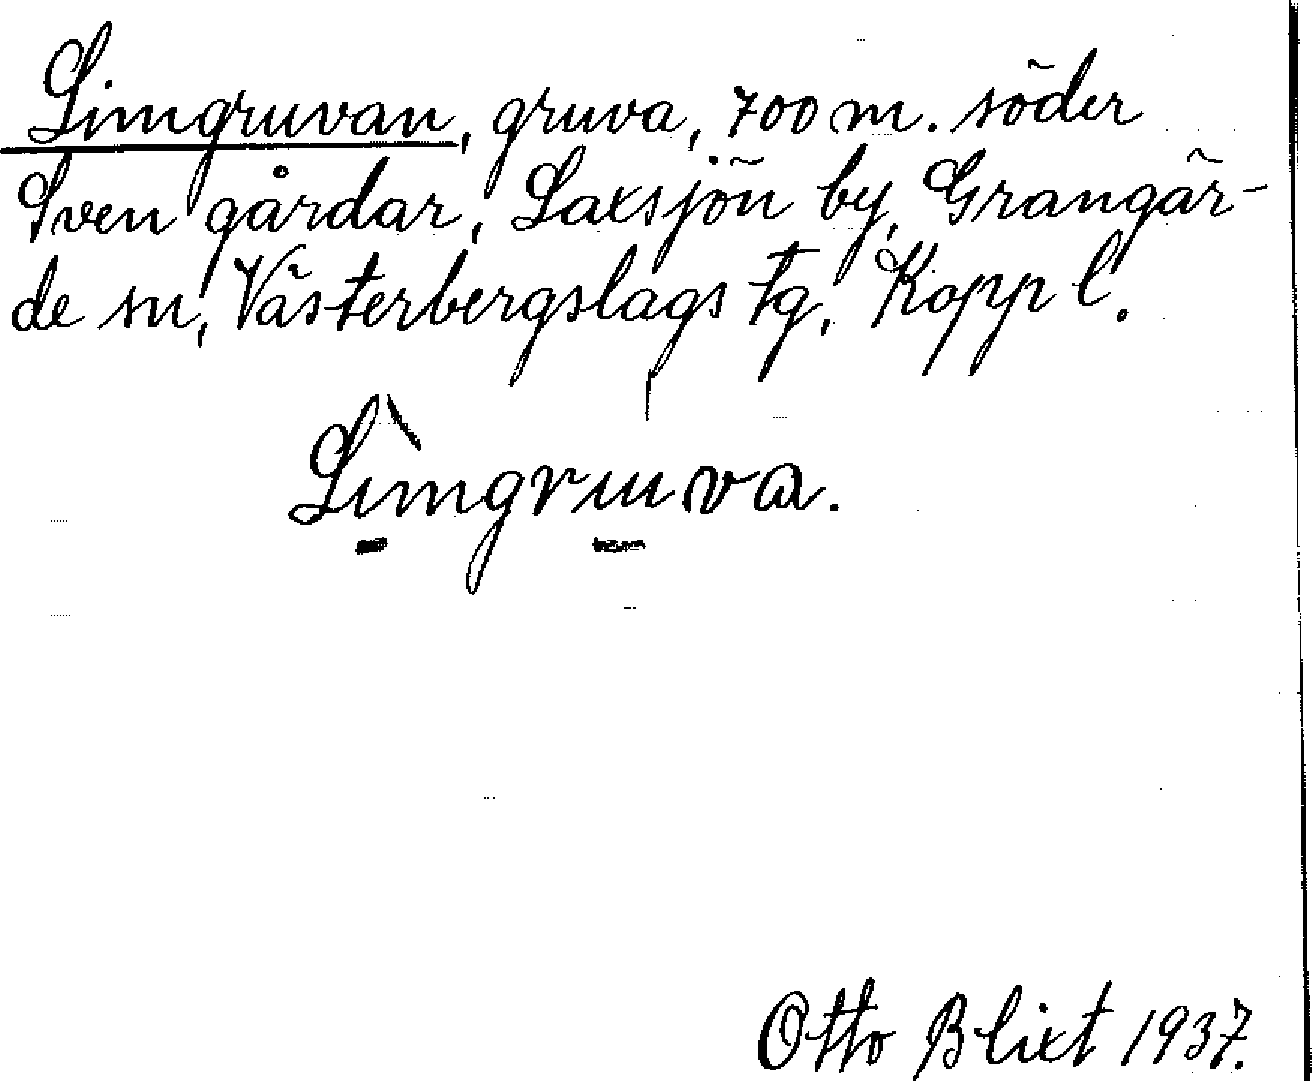 Limgruvan, gruva, 700 m. söder
Sven gårdar, Laxsjön by, Grangär-
de sn, Västerbergslags tg, Kopp l.
Limgruva.
Otto Blixt 1937.